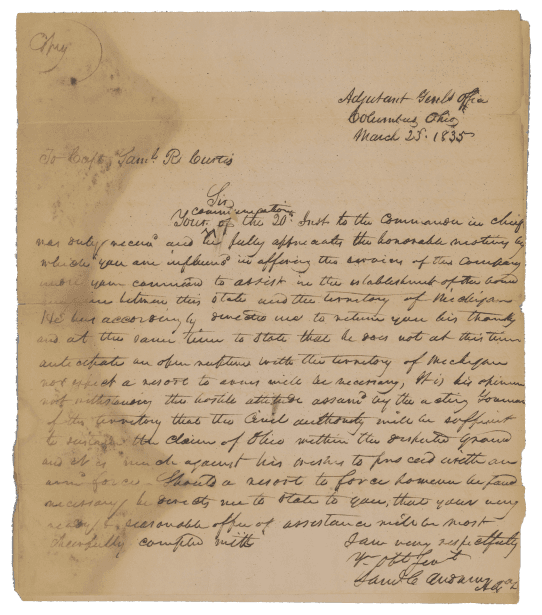 Copy
Adjutant Genls Office
Columbus, Ohio
March 25. 1835
To Capt. Saml. R. Curtis
Sir
communication
Your of the 20th Inst to the Commander in chief
was duly receivd and he fully appreciates the honorable motives by
which you are influencd in offering the services of the Company
under your command to assist in the establishment of the bound
line between this State and the territory of Michigan
He has accordingly directed me to return you his thanks
and at the same time to State that he does not at this time
anticipate an open rupture with the territory of Michigan
nor expect a resort to arms will be necessary, It is his opinion
not withstanding the hostile attitude assumd by the acting Governor
of the territory that the Civil authority will be sufficient
to sustain the claims of Ohio within the disputed ground
and it is much against his wishes to proceed with an
armd force. Should a resort to force however be found
necessary he directs me to State to you, that your very
ready & seasonable offer of assistance will be most
cheerfully complied with
I am very respectfully
Yr obt Servt
Saml C Andrews